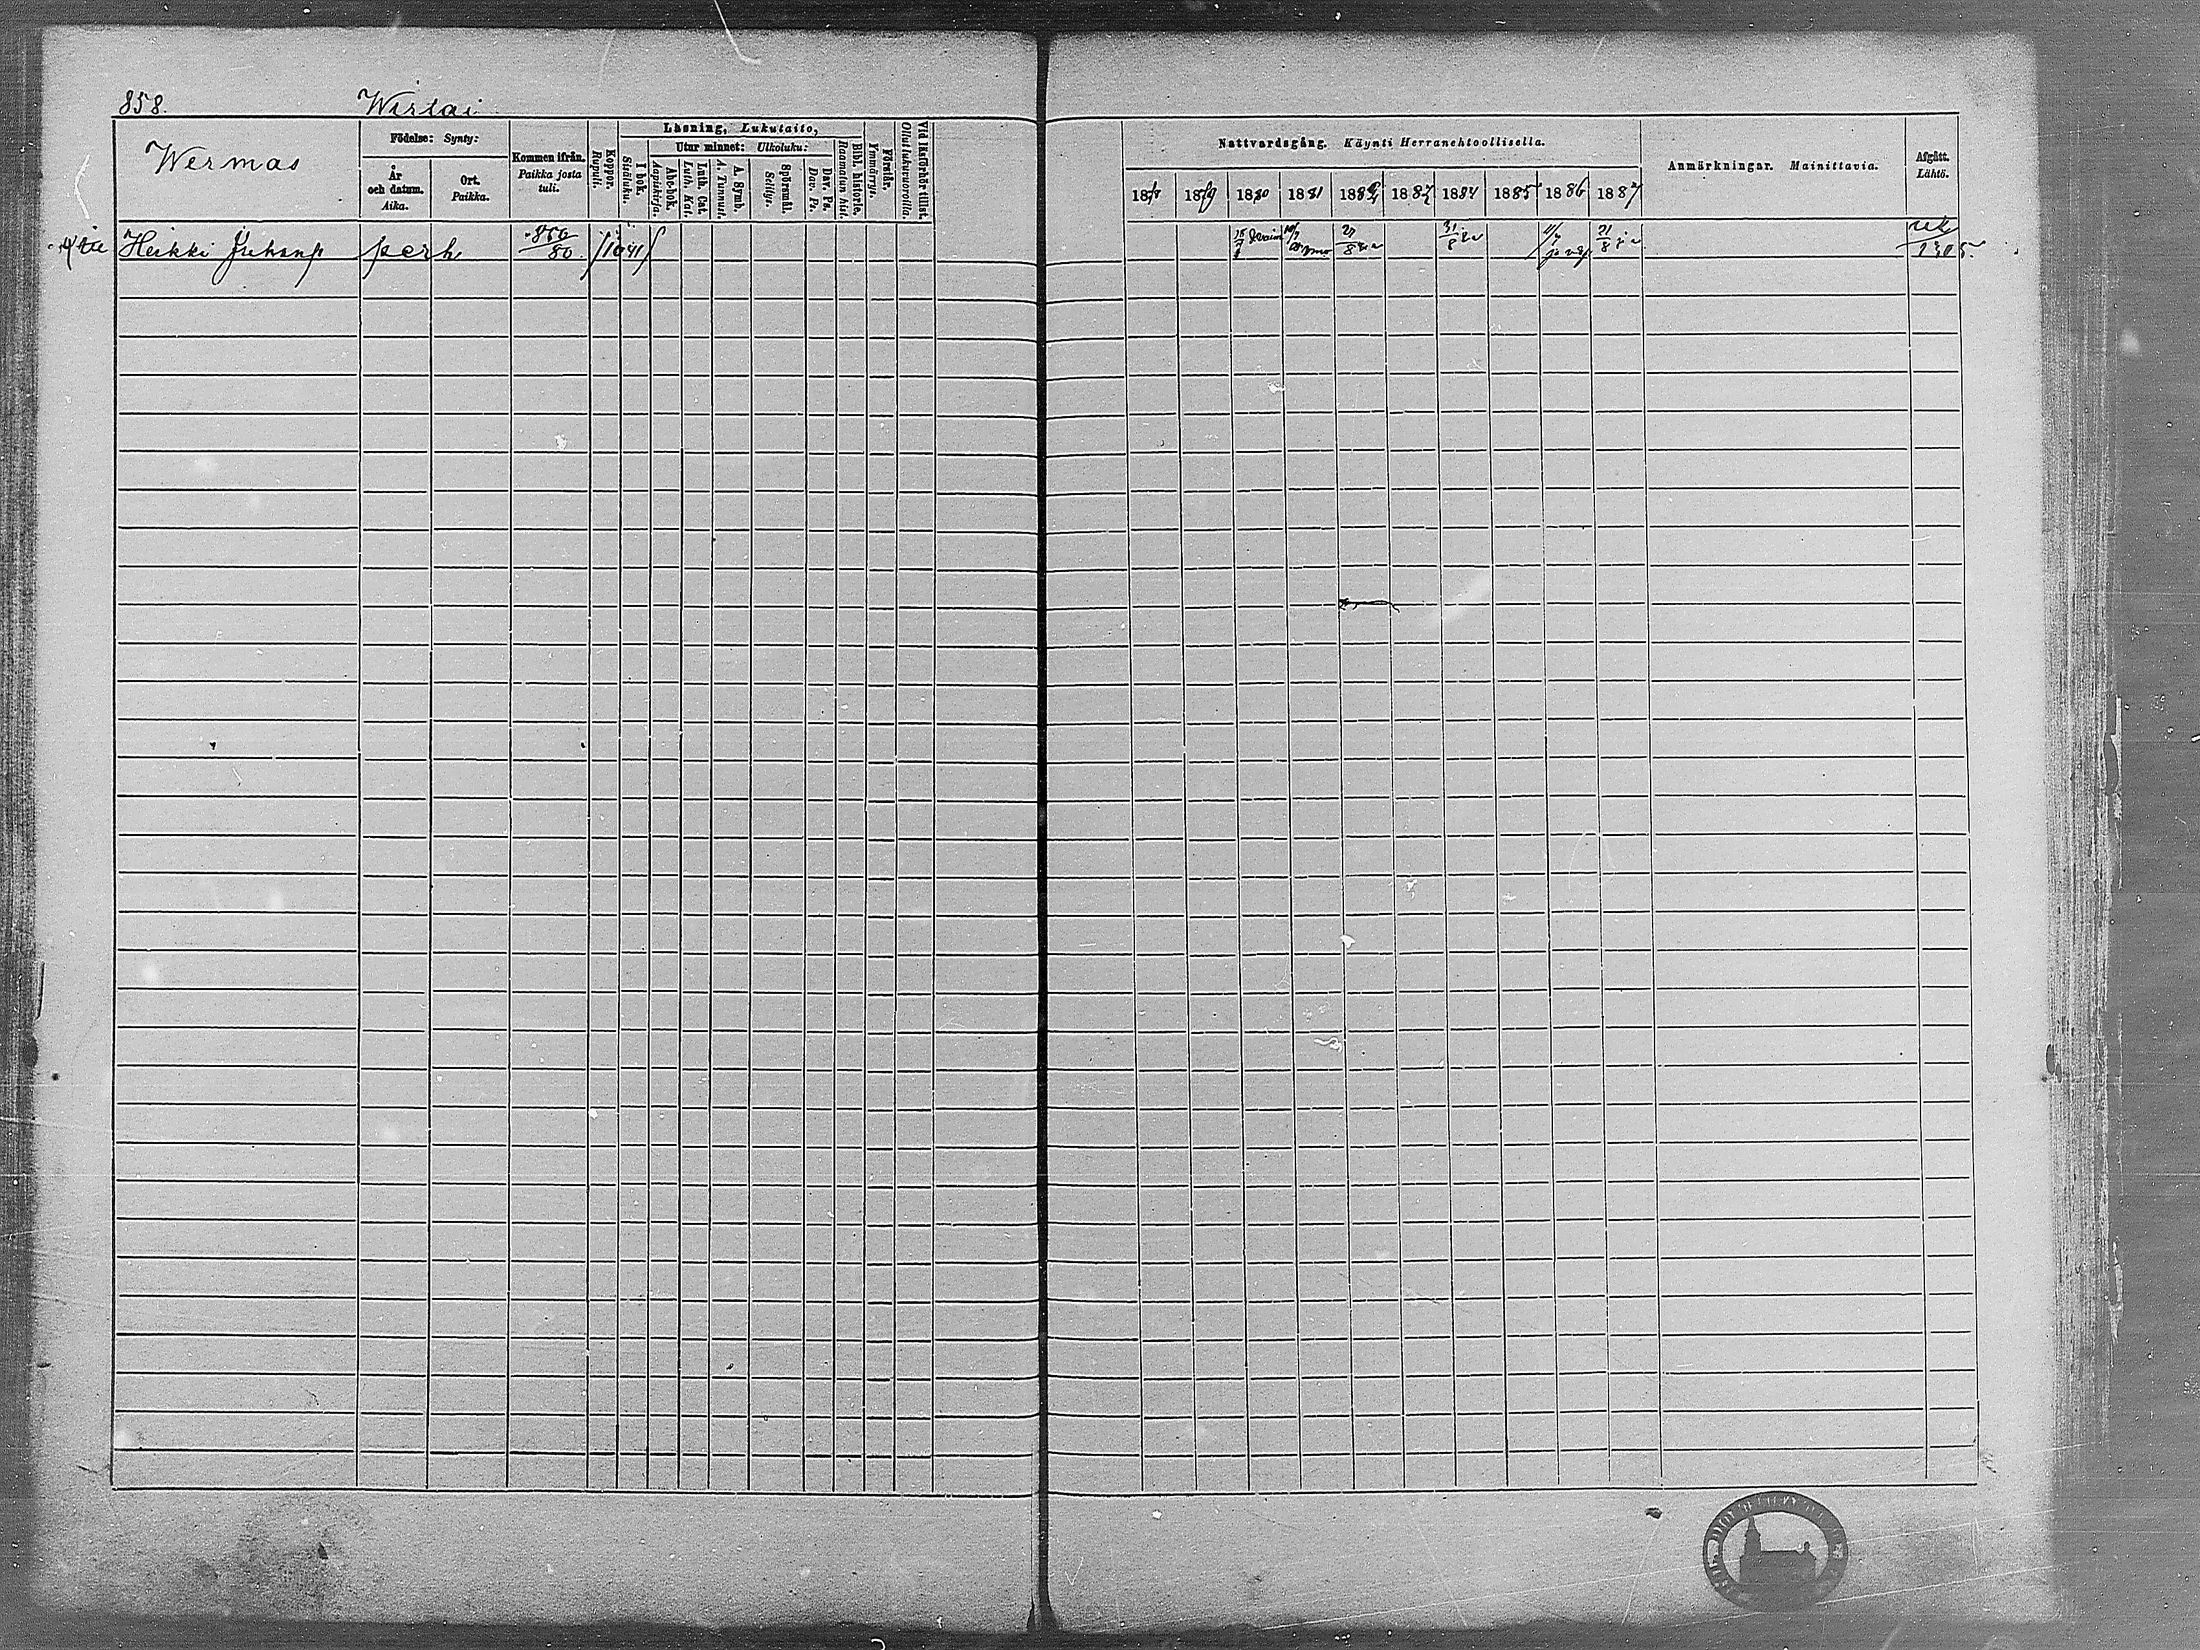 858. Wirtai
Wermas
Födelse: Synty:
År och datum. Aika.
Ort. Paikka.
Kommen ifrån. Paikka josta tuli.
Koppor. Rupuli.
Läsning, Lukutaito,
I bok. Sisäluku.
Utur minnet: Ulkoluku:
Abc-bok. Aapiskirja.
Luth. Cat. Luth. Kat.
A. Symb. A. Tunnust.
Spörsmål. Selitys.
Dav. Ps. Dav. Ps.
Bibl. historie. Raamatun hist.
Förstår. Ymmärrys.
Vid läsförhör tillst. Ollut lukuvuoroilla.
Nattvardsgång. Käynti Herranehtoollisella.
1878 1879 1880 1881 1882 1883 1884 1885 1886 1887
Anmärkningar. Mainittavia.
Afgått. Lähtö.
Heikki Juhanp perh 856/80 1041
27/8 31/8 21/8